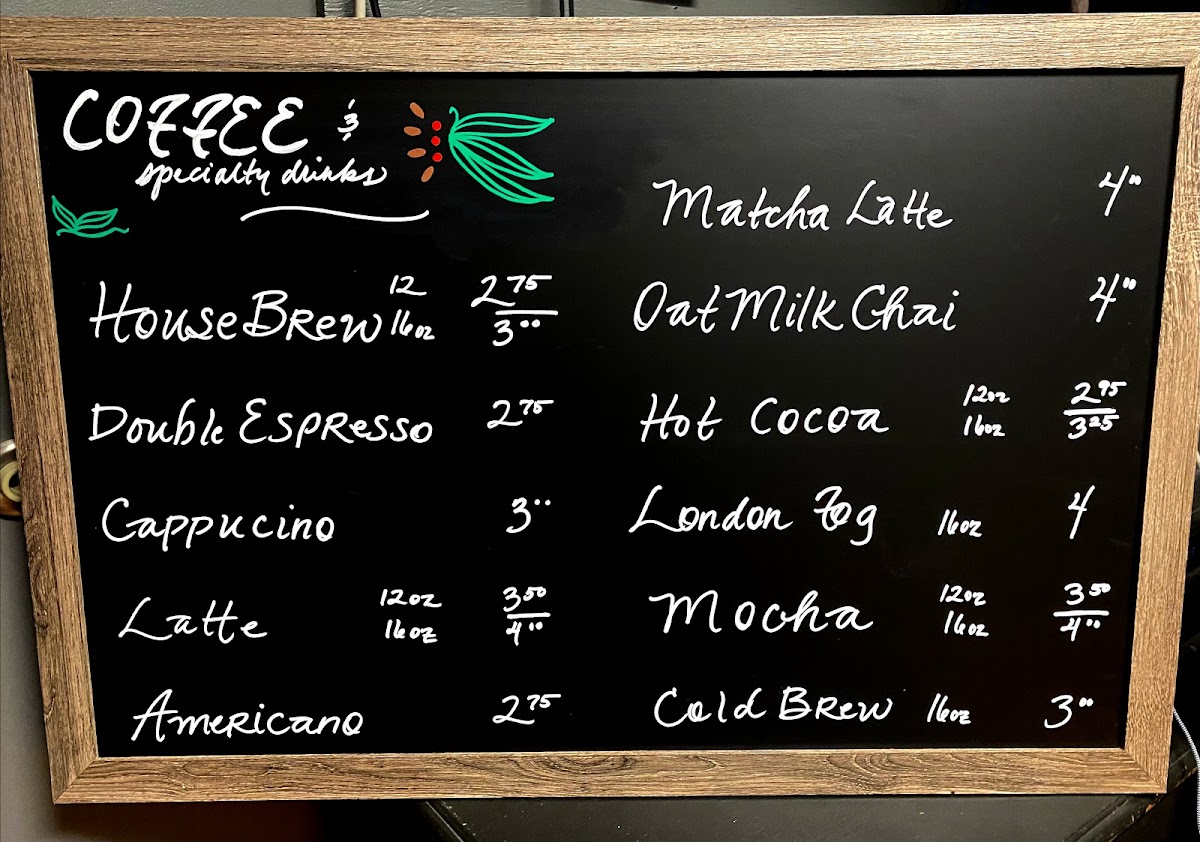 COFFEE &
specialty drinks
House Brew 12 2.75
16oz 3.00
Double Espresso 2.75
Cappucino 3.00
Latte 12oz 3.50
16oz 4.00
Americano 2.75
Matcha Latte 4.00
Oat Milk Chai 4.00
Hot Cocoa 12oz 2.95
16oz 3.25
London Fog 16oz 4
Mocha 12oz 3.50
16oz 4.00
Cold Brew 16oz 3.00